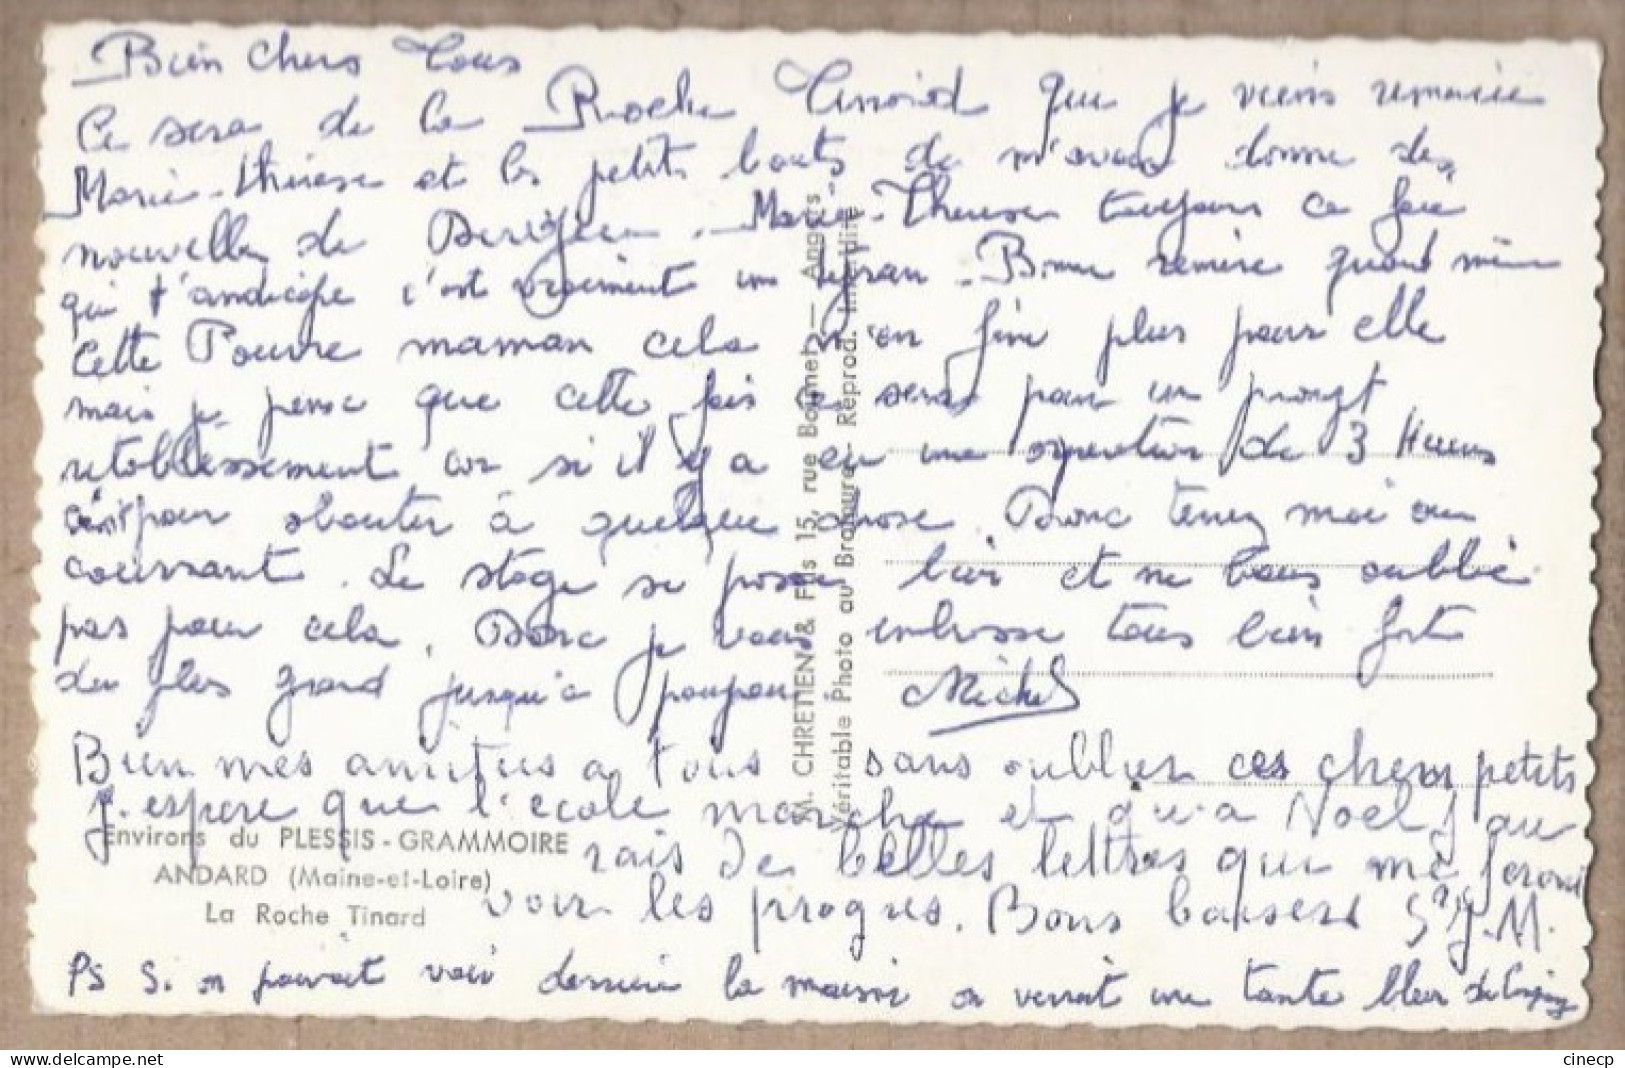 Bien chers Tous
Ce sera de la Roche Tinard que je viens remercie
Marie-thérèse et les petits bouts de m'avoir donné des
nouvelles de . Marie-Therese toujours ce foie
qui t'andicape c'est vraiment un . Bonne remise quand même
Cette Pauvre maman cela n'en fini plus pour elle
mais je pense que cette fois ce sera pour un prompt
retablissement car si il y a eu une operation de 3 Heures
c'est pour aboutir à quelque chose. Donc tenez moi au
courrant. Le stage se passe bien et ne vous oublie
pas pour cela. Donc je vous embrasse tous bien fort
du plus grand jusqu'a poupou Michel
Bien mes amities a tous sans oublier ces chers petits
J'espere que l'ecole marche et qu'a Noel j'au
rais de belles lettres que me feront
voir les progres. Bons baisers J.M.
PS S. on pouvait voir derriere la maison on verrait une tante bleu de
Environs du PLESSIS-GRAMMOIRE
ANDARD (Maine-et-Loire)
La Roche Tinard
M. CHRETIEN & Fils 15, rue Boumet — Angers
Véritable Photo au Bromure - Reprod. Interdite
cinecp